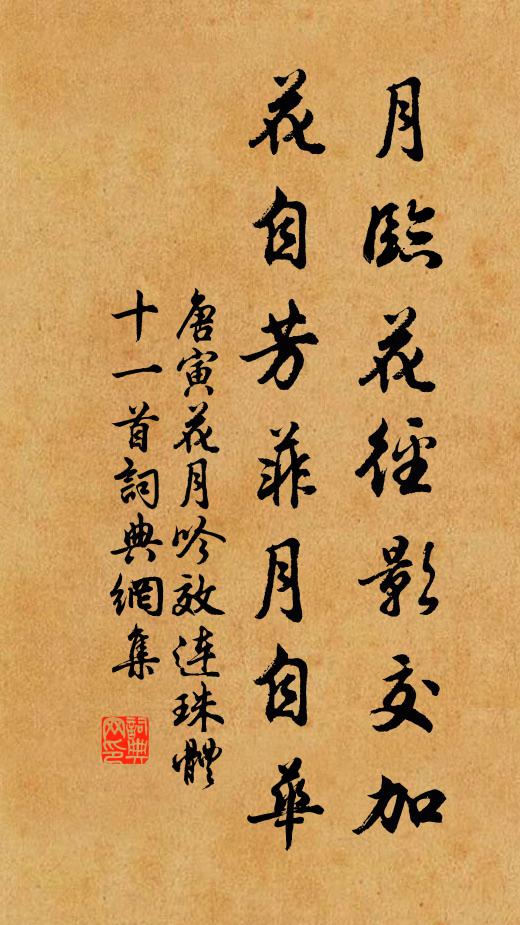 月臨花徑影交加
花自芳菲月自華
唐寅花月吟效連珠體
十一首詞典網集
詞典網印